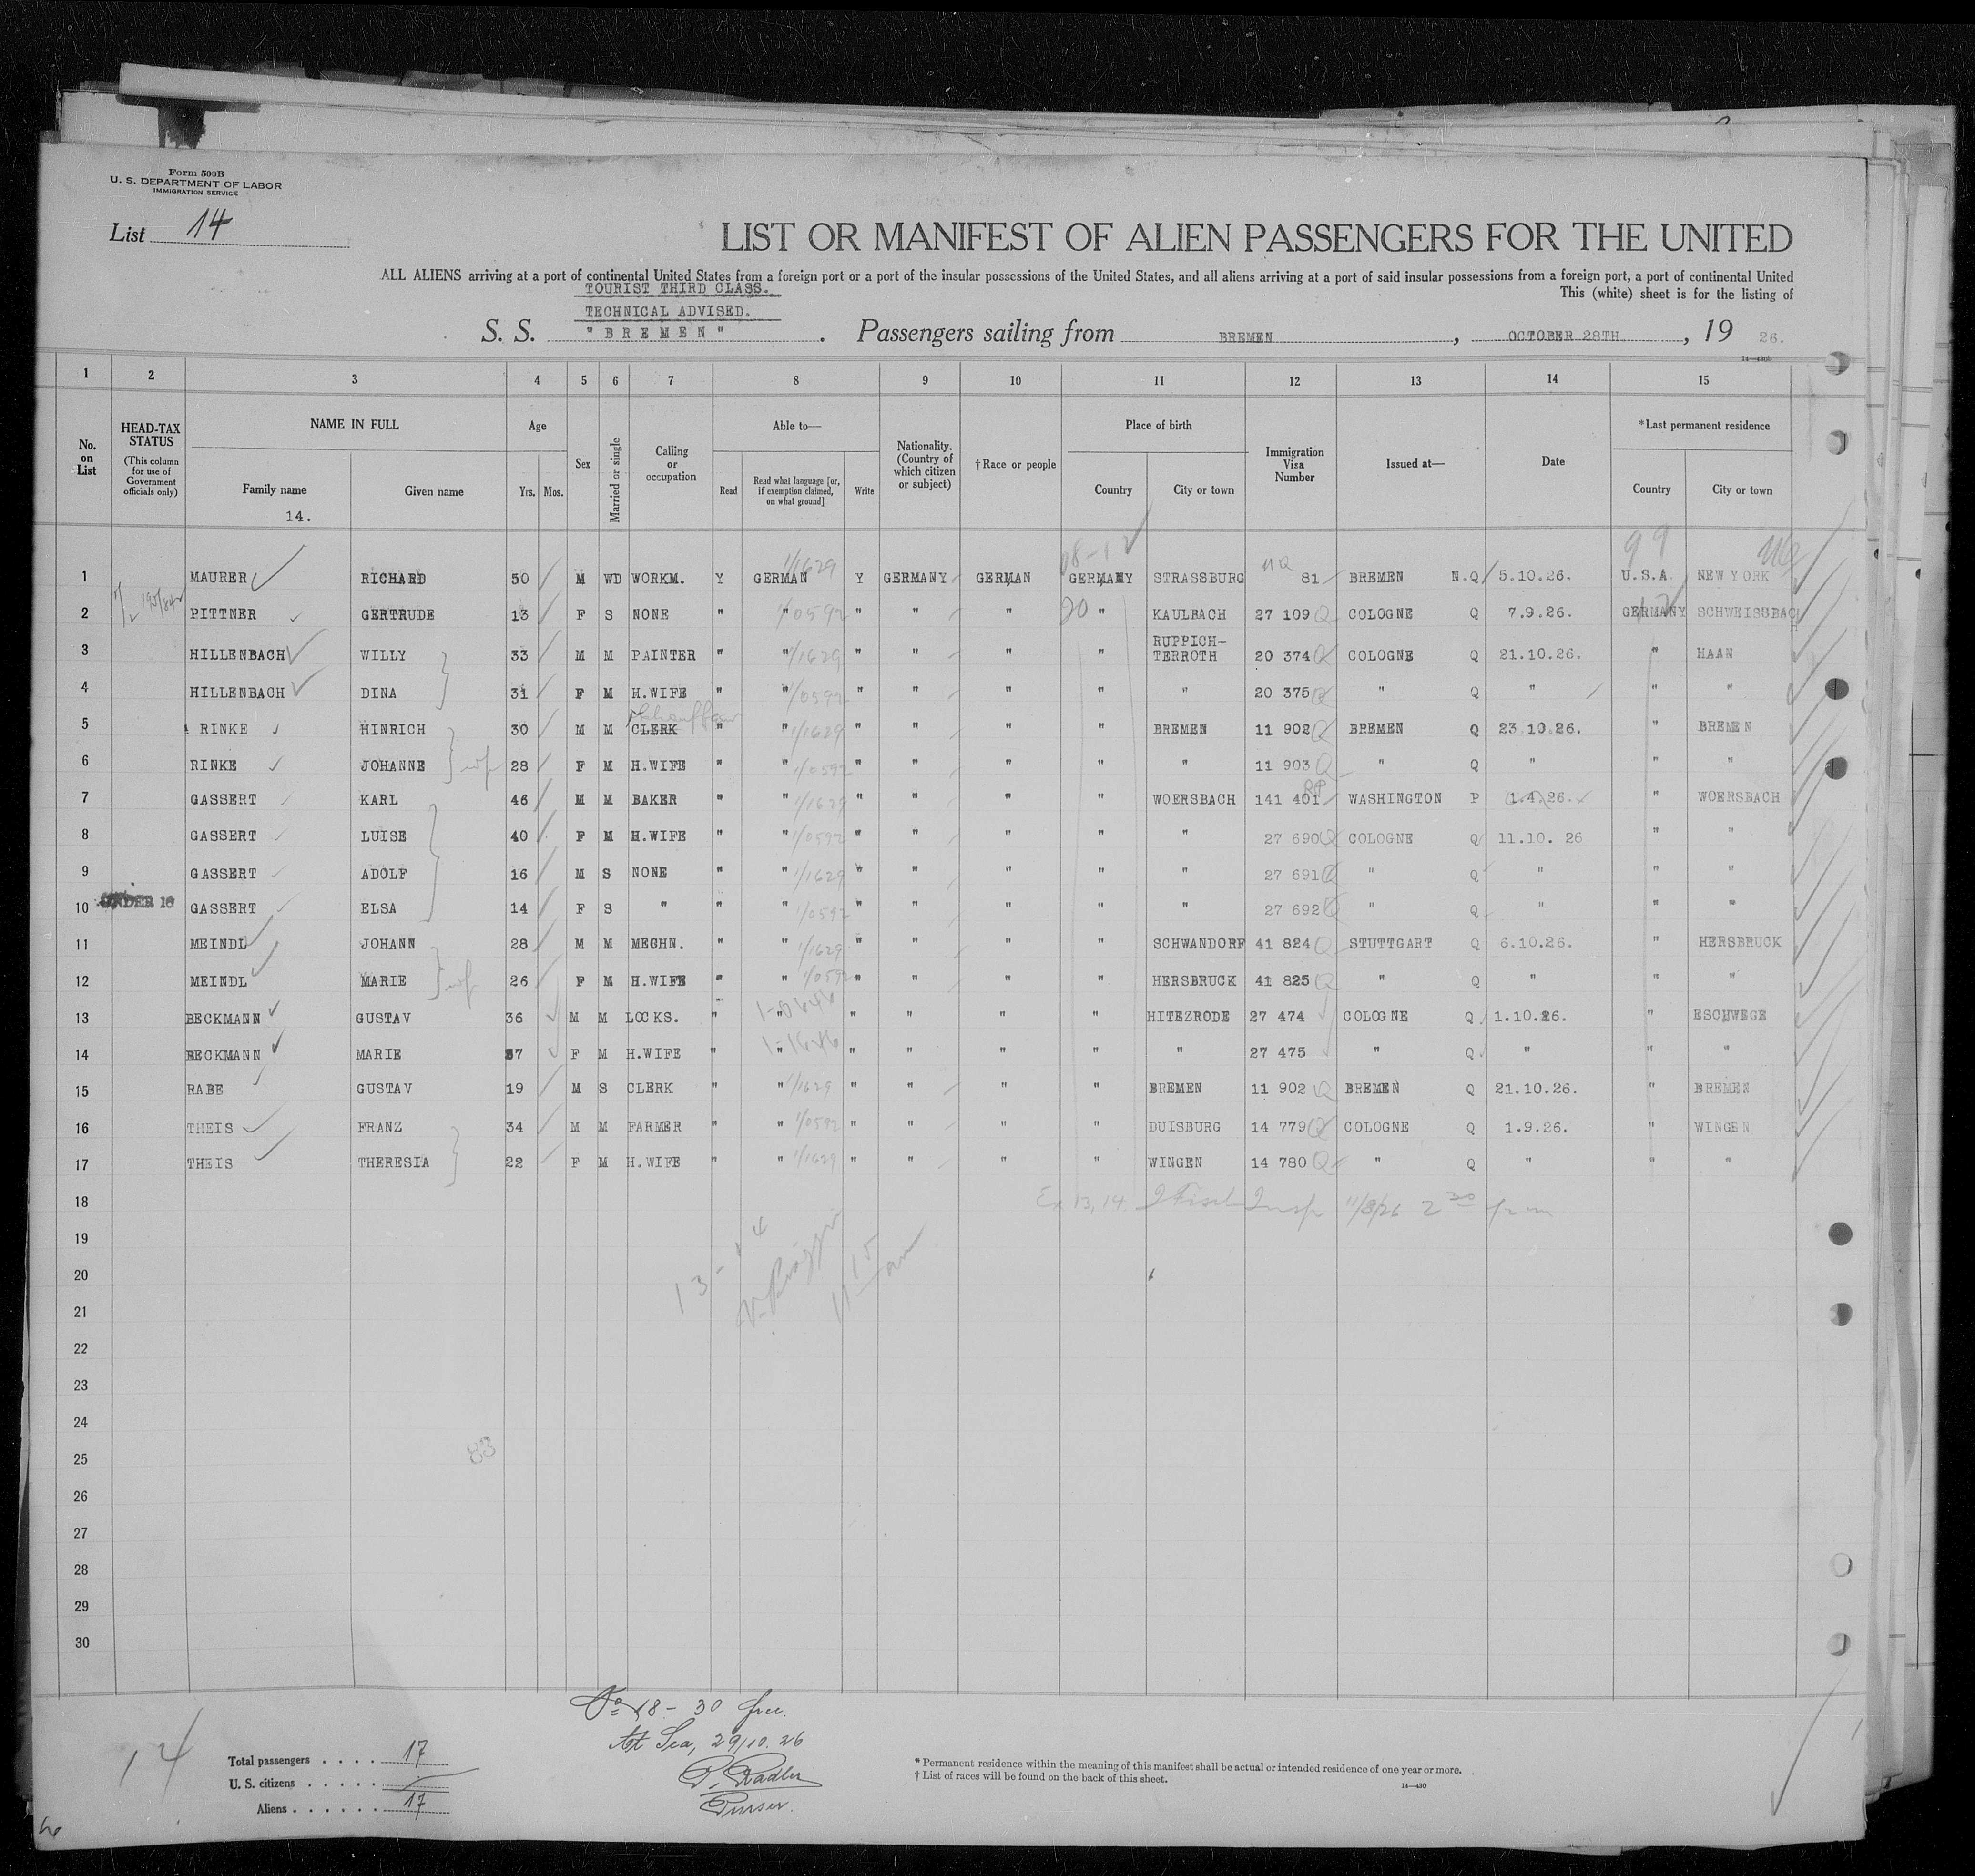 Form 500B
U. S. DEPARTMENT OF LABOR
IMMIGRATION SERVICE
List 14
LIST OR MANIFEST OF ALIEN PASSENGERS FOR THE UNITED
ALL ALIENS arriving at a port of continental United States from a foreign port or a port of the insular possessions of the United States, and all aliens arriving at a port of said insular possessions from a foreign port, a port of continental United
TOURIST THIRD CLASS.
This (white) sheet is for the listing of
TECHNICAL ADVISED.
S. S. "BREMEN". Passengers sailing from BREMEN, OCTOBER 28TH, 19 26.
1 2 3 4 5 6 7 8 9 10 11 12 13 14 15
No. on List
HEAD-TAX STATUS (This column for use of Government officials only)
NAME IN FULL
Family name
Given name
14.
Age
Yrs. Mos.
Sex
Married or single
Calling or occupation
Able to—
Read
Read what language [or, if exemption claimed, on what ground]
Write
Nationality. (Country of which citizen or subject)
†Race or people
Place of birth
Country
City or town
Immigration Visa Number
Issued at—
Date
*Last permanent residence
Country
City or town
08-12 99
1 MAURER RICHARD 50 M WD WORKM. Y GERMAN 1/1629 Y GERMANY GERMAN GERMANY STRASSBURG 81 BREMEN N.Q 5.10.26. U.S.A. NEW YORK
2 PITTNER GERTRUDE 13 F S NONE " " 1/0592 " " " 20 " KAULBACH 27 109 Q COLOGNE Q 7.9.26. GERMANY SCHWEISSBACH
3 HILLENBACH WILLY 33 M M PAINTER " " 1/1629 " " " " RUPPICH-TERROTH 20 374 Q COLOGNE Q 21.10.26. " HAAN
4 HILLENBACH DINA 31 F M H.WIFE " " 1/0592 " " " " " 20 375 Q " Q " " "
5 RINKE HINRICH 30 M M CLERK Chauffeur " " 1/1629 " " " " BREMEN 11 902 Q BREMEN Q 23.10.26. " BREMEN
6 RINKE JOHANNE wf 28 F M H.WIFE " " 1/0592 " " " " " 11 903 Q " Q " " "
7 GASSERT KARL 46 M M BAKER " " 1/1629 " " " " WOERSBACH 141 401 RP WASHINGTON P 1.4.26. " WOERSBACH
8 GASSERT LUISE 40 F M H.WIFE " " 1/0592 " " " " " 27 690 Q COLOGNE Q 11.10. 26 " "
9 GASSERT ADOLF 16 M S NONE " " 1/1629 " " " " " 27 691 Q " Q " " "
10 UNDER 16 GASSERT ELSA 14 F S " " " 1/0592 " " " " " 27 692 Q " Q " " "
11 MEINDL JOHANN 28 M M MECHN. " " 1/1629 " " " " SCHWANDORF 41 824 Q STUTTGART Q 6.10.26. " HERSBRUCK
12 MEINDL MARIE wf 26 F M H.WIFE " " 1/0592 " " " " HERSBRUCK 41 825 Q " Q " " "
13 BECKMANN GUSTAV 36 M M LOCKS. " " " " " " HITEZRODE 27 474 COLOGNE Q 1.10.26. " ESCHWEGE
14 BECKMANN MARIE 37 F M H.WIFE " " " " " " " 27 475 " Q " " "
15 RABE GUSTAV 19 M S CLERK " " 1/1629 " " " " BREMEN 11 902 Q BREMEN Q 21.10.26. " BREMEN
16 THEIS FRANZ 34 M M FARMER " " 1/0592 " " " " DUISBURG 14 779 Q COLOGNE Q 1.9.26. " WINGEN
17 THEIS THERESIA 22 F M H.WIFE " " 1/1629 " " " " WINGEN 14 780 Q " Q " " "
18 Ex 13, 14. Insp 11/8/26 2 20 pm
19
20 13-14
21
22
23
24
25 83
26
27
28
29
30
No 18-30 free.
At Sea, 29/10.26
P. Radler
Purser.
14
Total passengers . . . . 17
U. S. citizens . . . . .
Aliens . . . . . . 17
* Permanent residence within the meaning of this manifest shall be actual or intended residence of one year or more.
† List of races will be found on the back of this sheet.
14—430